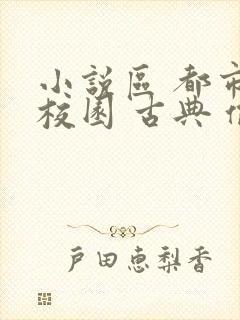 小説區 都市
校園 古典
戸田恵梨香